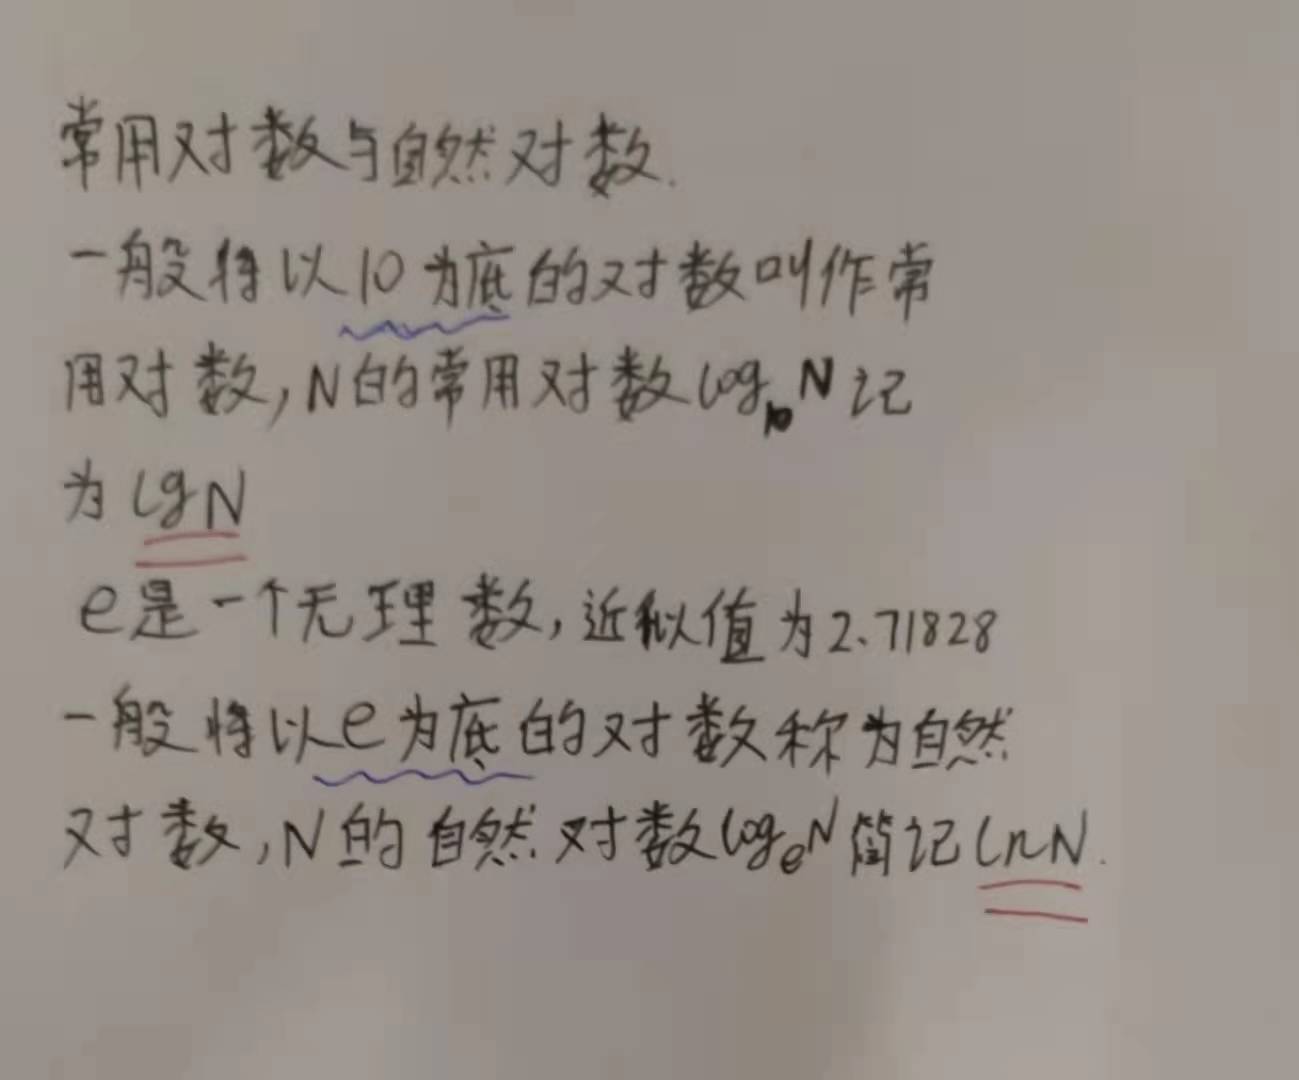 常用对数与自然对数.
一般将以10为底的对数叫作常
用对数,N的常用对数log₁₀N记
为lgN
e是一个无理数,近似值为2.71828
一般将以e为底的对数称为自然
对数,N的自然对数logₑN简记lnN.